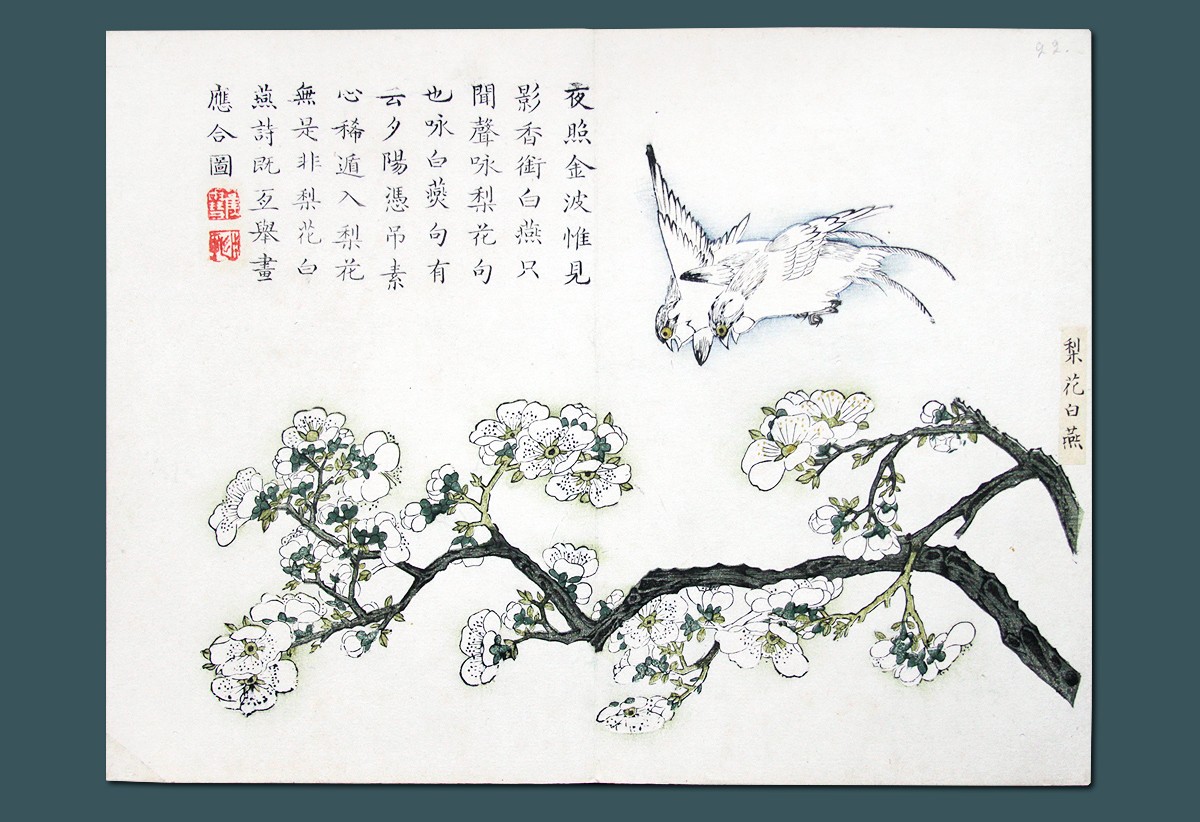 92.
梨花白燕
夜照金波惟見
影香銜白燕只
聞聲咏梨花句
也咏白燕句有
云夕陽憑吊素
心稀遁入梨花
無是非梨花白
燕詩既互舉畫
應合圖